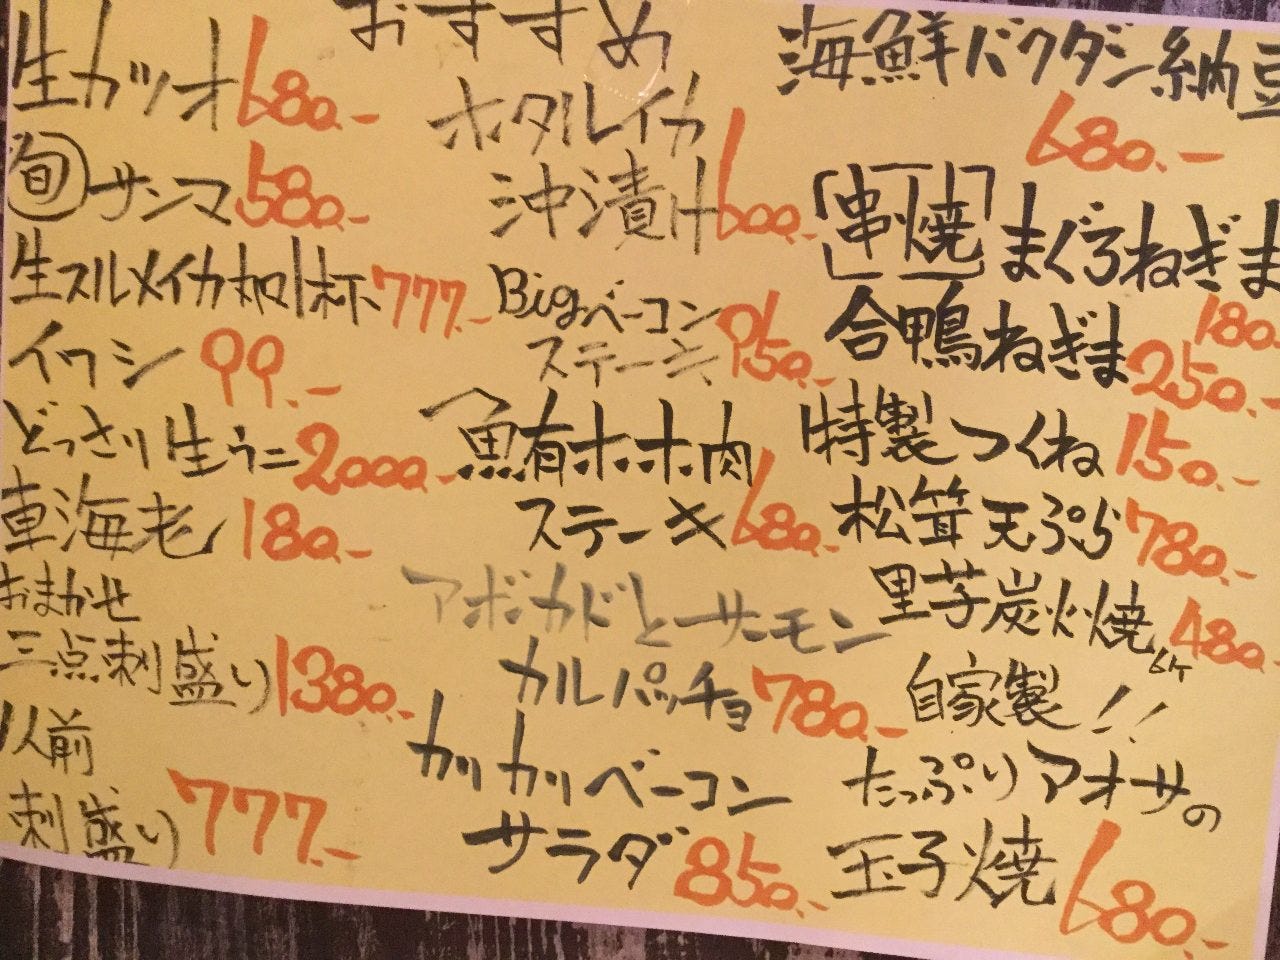 おすすめ
生カツオ 680.-
旬 サンマ 580.-
生スルメイカ刺1杯 777.-
イワシ 99.-
どっさり生ウニ 2000.-
車海老 180.-
おまかせ
三点刺盛り 1380.-
1人前
刺盛り 777.-
ホタルイカ
沖漬け 600.-
Bigベーコン
ステーキ 950.-
鮪ホホ肉
ステーキ 680.-
アボカドとサーモン
カルパッチョ 780.-
カリカリベーコン
サラダ 850.-
海鮮バクダン納豆
680.-
「串焼」まぐろねぎま
180.
合鴨ねぎま 250.-
特製つくね 150.-
松茸天ぷら 780.-
里芋炭火焼 6ケ 480.-
自家製!!
たっぷりアオサの
玉子焼 680.-